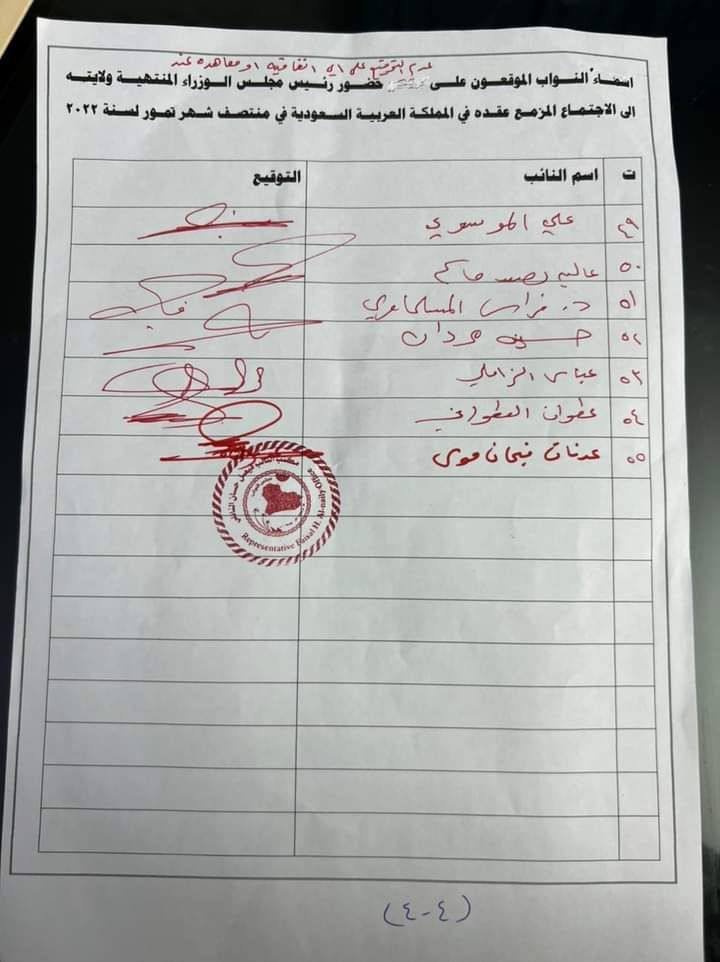 عدم التوقيع على اي اتفاقية او معاهده عند
اسماء النواب الموقعون على حضور رئيس مجلس الوزراء المنتهية ولايته
الى الاجتماع المزمع عقده في المملكة العربية السعودية في منتصف شهر تموز لسنة ٢٠٢٢
ت اسم النائب التوقيع
٤٩ علي الموسوي
٥٠ عاليه نصيف جاسم
٥١ د. فراس المسلماوي
٥٢ حسين مردان
٥٣ عباس الزاملي
٥٤ عطوان العطواني
٥٥ عدنان فيحان موسى
مكتب النائب فيصل حسان النائلي
Representative Faisal H. Al-naily Office
(٤-٤)